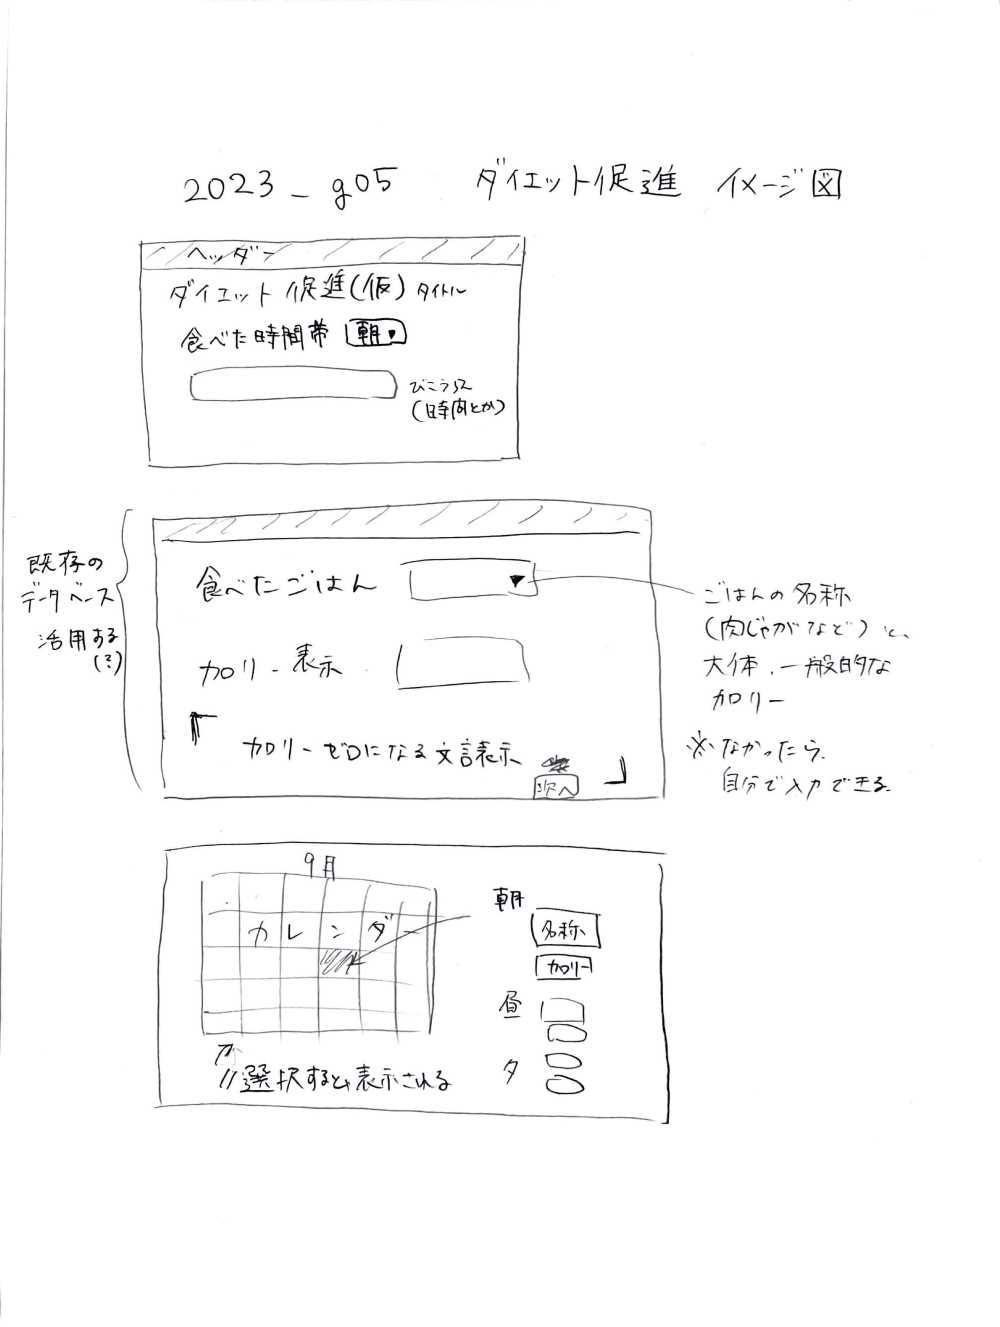 2023_g05 ダイエット促進 イメージ図
ヘッダー
ダイエット促進(仮) タイトル
食べた時間帯 朝▼
びこうらん
(時間とか)
既存の
データベース
活用する
(?)
食べたごはん ▼
カロリー表示
「
カロリーゼロになる文言表示
」
次へ
ごはんの名称
(肉じゃがなど)と、
大体、一般的な
カロリー
※なかったら、
自分で入力できる
9月
カレンダー
朝
名称
カロリー
昼
夕
選択すると、表示される